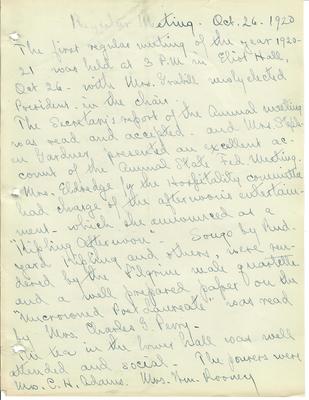 Regular Meeting. Oct. 26. 1920
The first regular meeting of the year 1920-
21 was held at 3 P.M. in Eliot Hall,
Oct 26 - with Mrs. newly elected
President in the chair.
The Secretary's report of the Annual meeting
was read and accepted - and Mrs. Steph-
en Gardner presented an excellent ac-
count of the Annual State Fed. Meeting.
Mrs. Eldredge for the Hospitality committee
had charge of the afternoon's entertain-
ment - which she announced as a
"Kipling Afternoon". Songs by Rud-
yard Kipling and others, were ren-
dered by the Pilgrim male quartette
and a well prepared paper on the
"Uncrowned Poet Laureate" was read
by Mrs. Charles G. Perry.
The tea in the lower hall was well
attended and social - The pourers were
Mrs. C. H. Adams. Mrs. Wm. Rooney